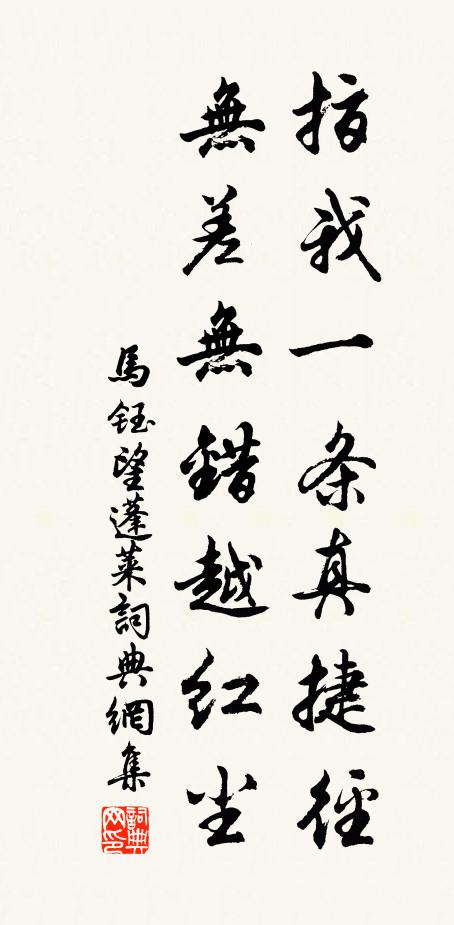 指我一条真捷徑
無差無錯越红尘
馬鈺望蓬莱詞典網集
詞典网印